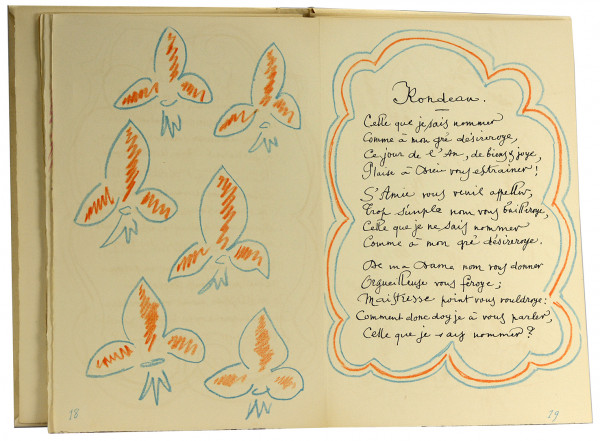 Rondeau.
Celle que je sais nommer
Comme à mon gré désireroye,
Ce jour de l'An, de biens & joye,
Plaise à Dieu vous estrainer !
S'Amie vous veuil appeller,
Trop simple nom vous bailleroye,
Celle que je ne sais nommer
Comme à mon gré désireroye.
De ma Dame nom vous donner
Orgueilleuse vous feroye ;
Maistresse point vous vouldroye :
Comment donc doy je à vous parler,
Celle que je sais nommer ?
18
29